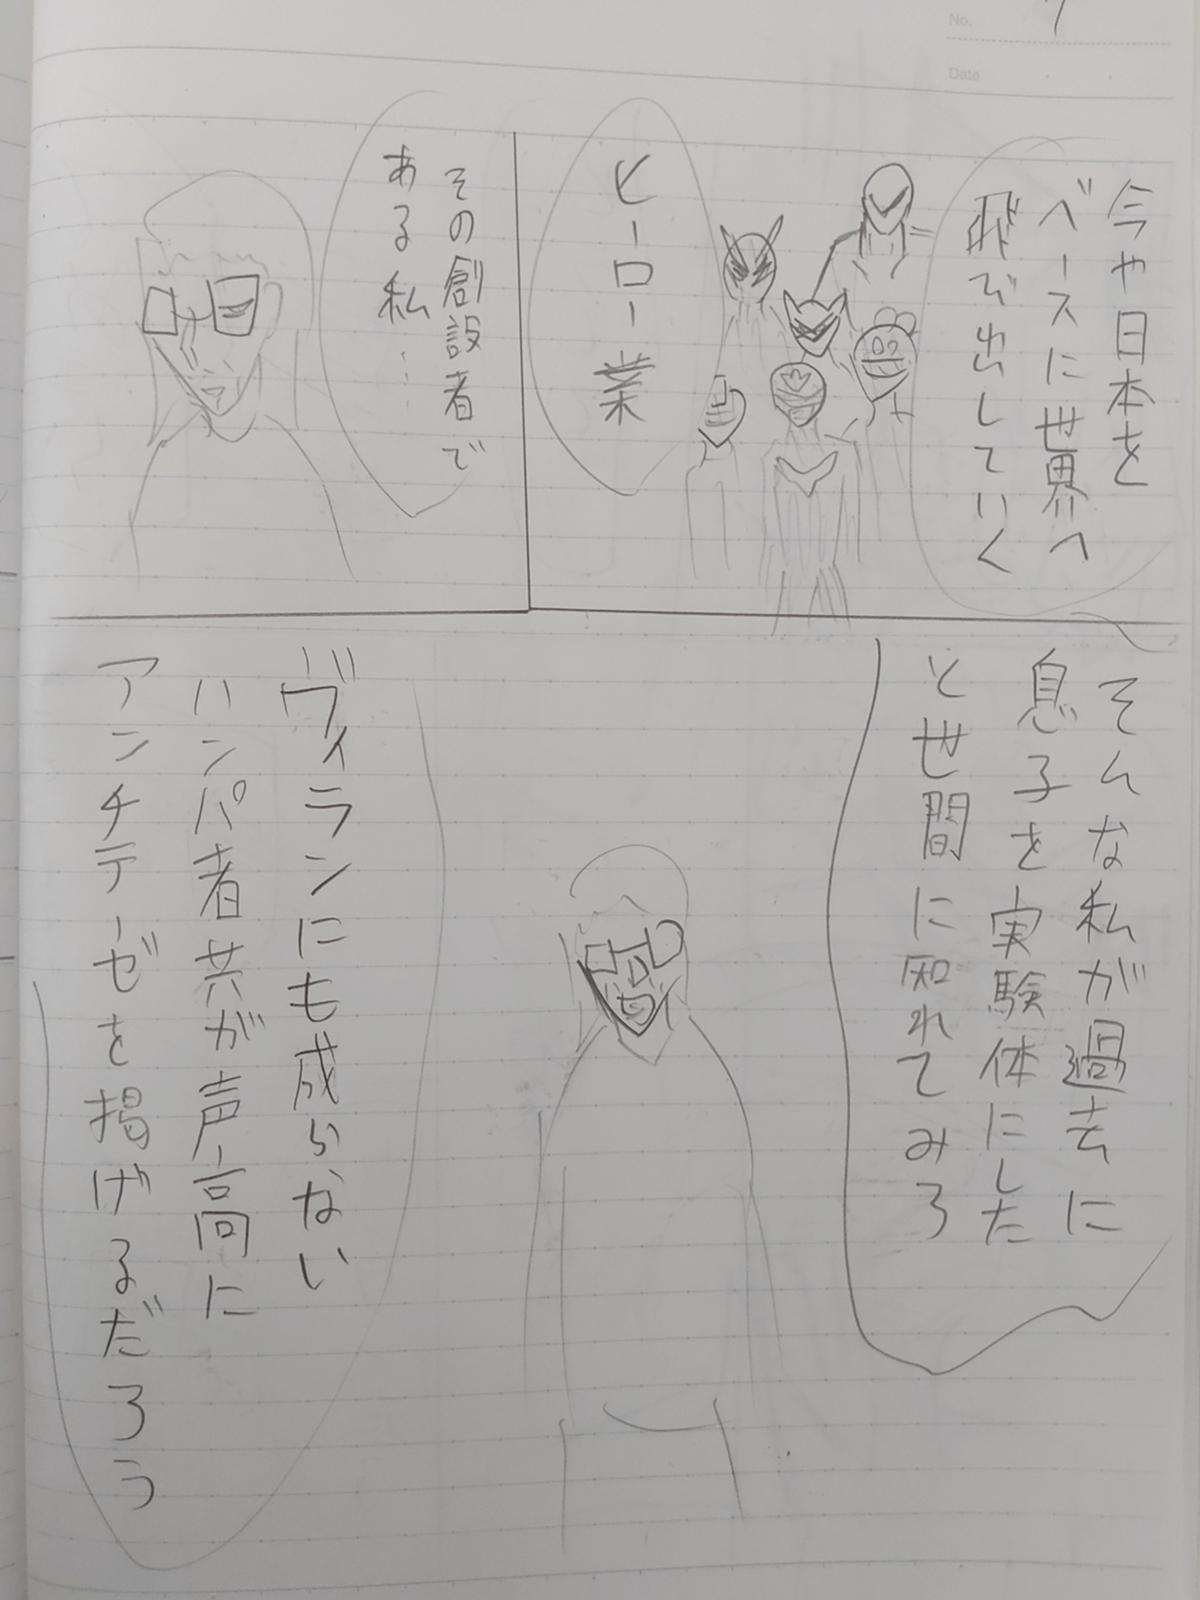 No. 7
Date
今や日本を
ベースに世界へ
飛び出していく
ヒーロー業
その創設者で
ある私……
そんな私が過去に
息子を実験体にした
と世間に知れてみろ
ヴィランにも成らない
ハンパ者共が声高に
アンチテーゼを掲げるだろう